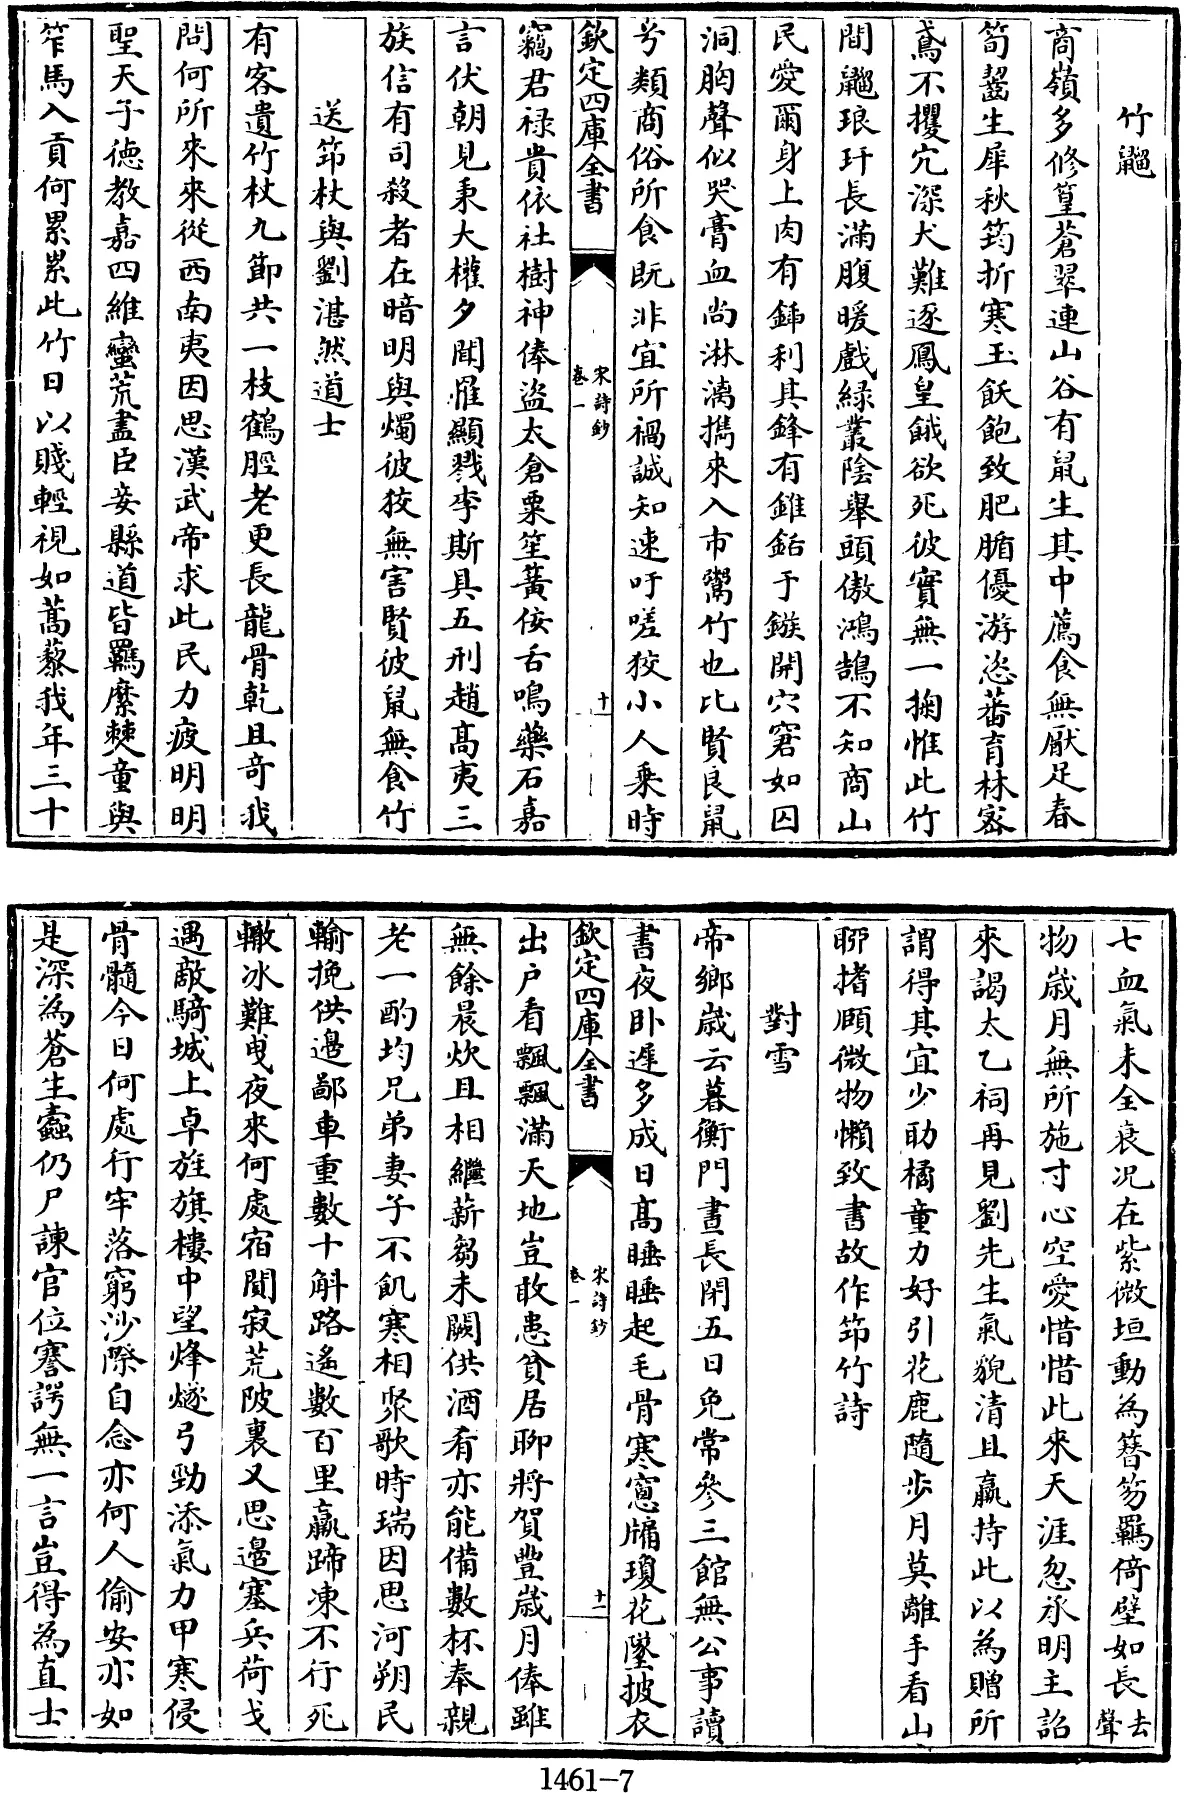 竹䶉
商嶺多修篁蒼翠連山谷有鼠生其中薦食無厭足春
筍齧生犀秋筠折寒玉飫飽致肥腯優游恣蕃育林密
鳶不攫穴深犬難逐鳳皇餓欲死彼實無一掬惟此竹
間䶉琅玕長滿腹暖戲緑叢陰舉頭傲鴻鵠不知商山
民愛爾身上肉有鍤利其鋒有錐銛于鏃開穴窘如囚
洞胸聲似哭膏血尚淋漓擕來入市鬻竹也比賢良鼠
兮類商俗所食既非宜所禍誠知速吁嗟狡小人乘時
欽定四庫全書
宋詩鈔
卷一
十
竊君禄貴依社樹神俸盜太倉粟笙簧佞舌鳴藥石嘉
言伏朝見秉大權夕聞罹顯戮李斯具五刑趙髙夷三
族信有司殺者在暗明與燭彼狡無害賢彼鼠無食竹
送笻杖與劉湛然道士
有客遺竹杖九節共一枝鶴脛老更長龍骨乾且竒我
問何所來來從西南夷因思漢武帝求此民力疲明明
聖天子德教嘉四維蠻荒盡臣妾縣道皆羈縻僰童與
笮馬入貢何累累此竹日以賤輕視如蒿藜我年三十
七血氣未全衰况在紫微垣動為簪笏羈倚壁如長去聲
物歳月無所施寸心空愛惜惜此來天涯忽承明主詔
來謁太乙祠再見劉先生氣貌清且羸持此以為贈所
謂得其宜少助橘童力好引花鹿隨步月莫離手看山
聊搘頤微物懶致書故作笻竹詩
對雪
帝鄉歳云暮衡門晝長閉五日免常參三館無公事讀
書夜卧遲多成日髙睡睡起毛骨寒窻牖瓊花墜披衣
欽定四庫全書
宋詩鈔
卷一
十一
出户看飄飄滿天地豈敢患貧居聊將賀豐歳月俸雖
無餘晨炊且相繼薪芻未闕供酒肴亦能備數杯奉親
老一酌均兄弟妻子不飢寒相聚歌時瑞因思河朔民
輸挽供邊鄙車重數十斛路遙數百里羸蹄凍不行死
轍冰難曳夜來何處宿閴寂荒陂裏又思邊塞兵荷戈
遇敵騎城上卓旌旗樓中望烽燧弓勁添氣力甲寒侵
骨髓今日何處行牢落窮沙際自念亦何人偷安亦如
是深為蒼生蠹仍尸諫官位謇諤無一言豈得為直士
1461-7